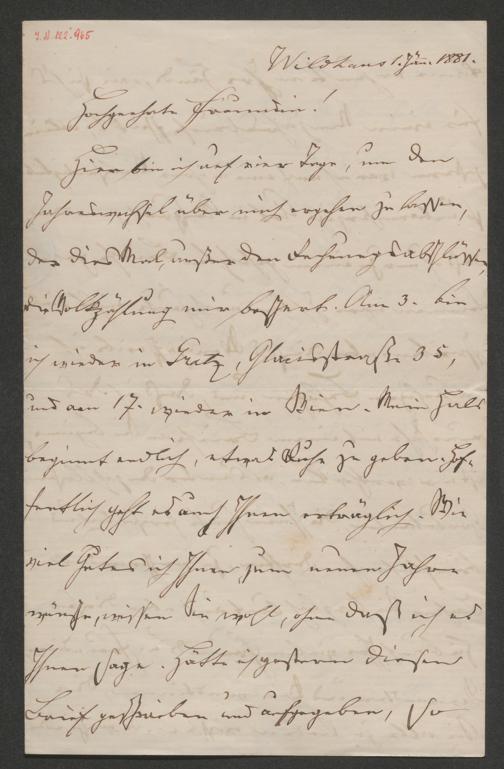 I.N. 122.965
Wildhaus 1. Jän. 1881.
Hochgeehrte Freundin!
Hier bin ich auf vier Tage, um den
Jahreswechsel über mich ergehen zu lassen,
der dies Mal, außer den Rechnungsabschlüssen,
die Volkszählung mir beschert. Am 3. bin
ich wieder in Gratz, Glacisstraße 35,
und am 17. wieder in Wien. Mein Hals
beginnt endlich, etwas Ruhe zu geben. Hof-
fentlich geht es auch Ihnen erträglich. Wie
viel Gutes ich Ihnen zum neuen Jahre
wünsche, wissen Sie wohl, ohne daß ich es
Ihnen sage. Hätte ich gestern diesen
Brief geschrieben und aufgegeben, so